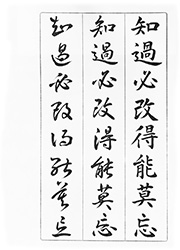 知過必改得能莫忘
知過必改得能莫忘
知過必改得能莫忘